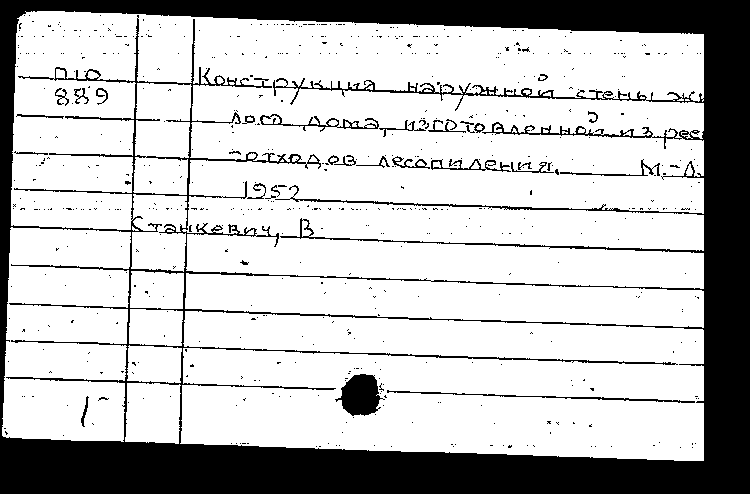 П10
889
Конструкция наружной стены жи
лого дома, изготовленной из реек
-отходов лесопиления. М.-Л.
1952
Станкевич, В